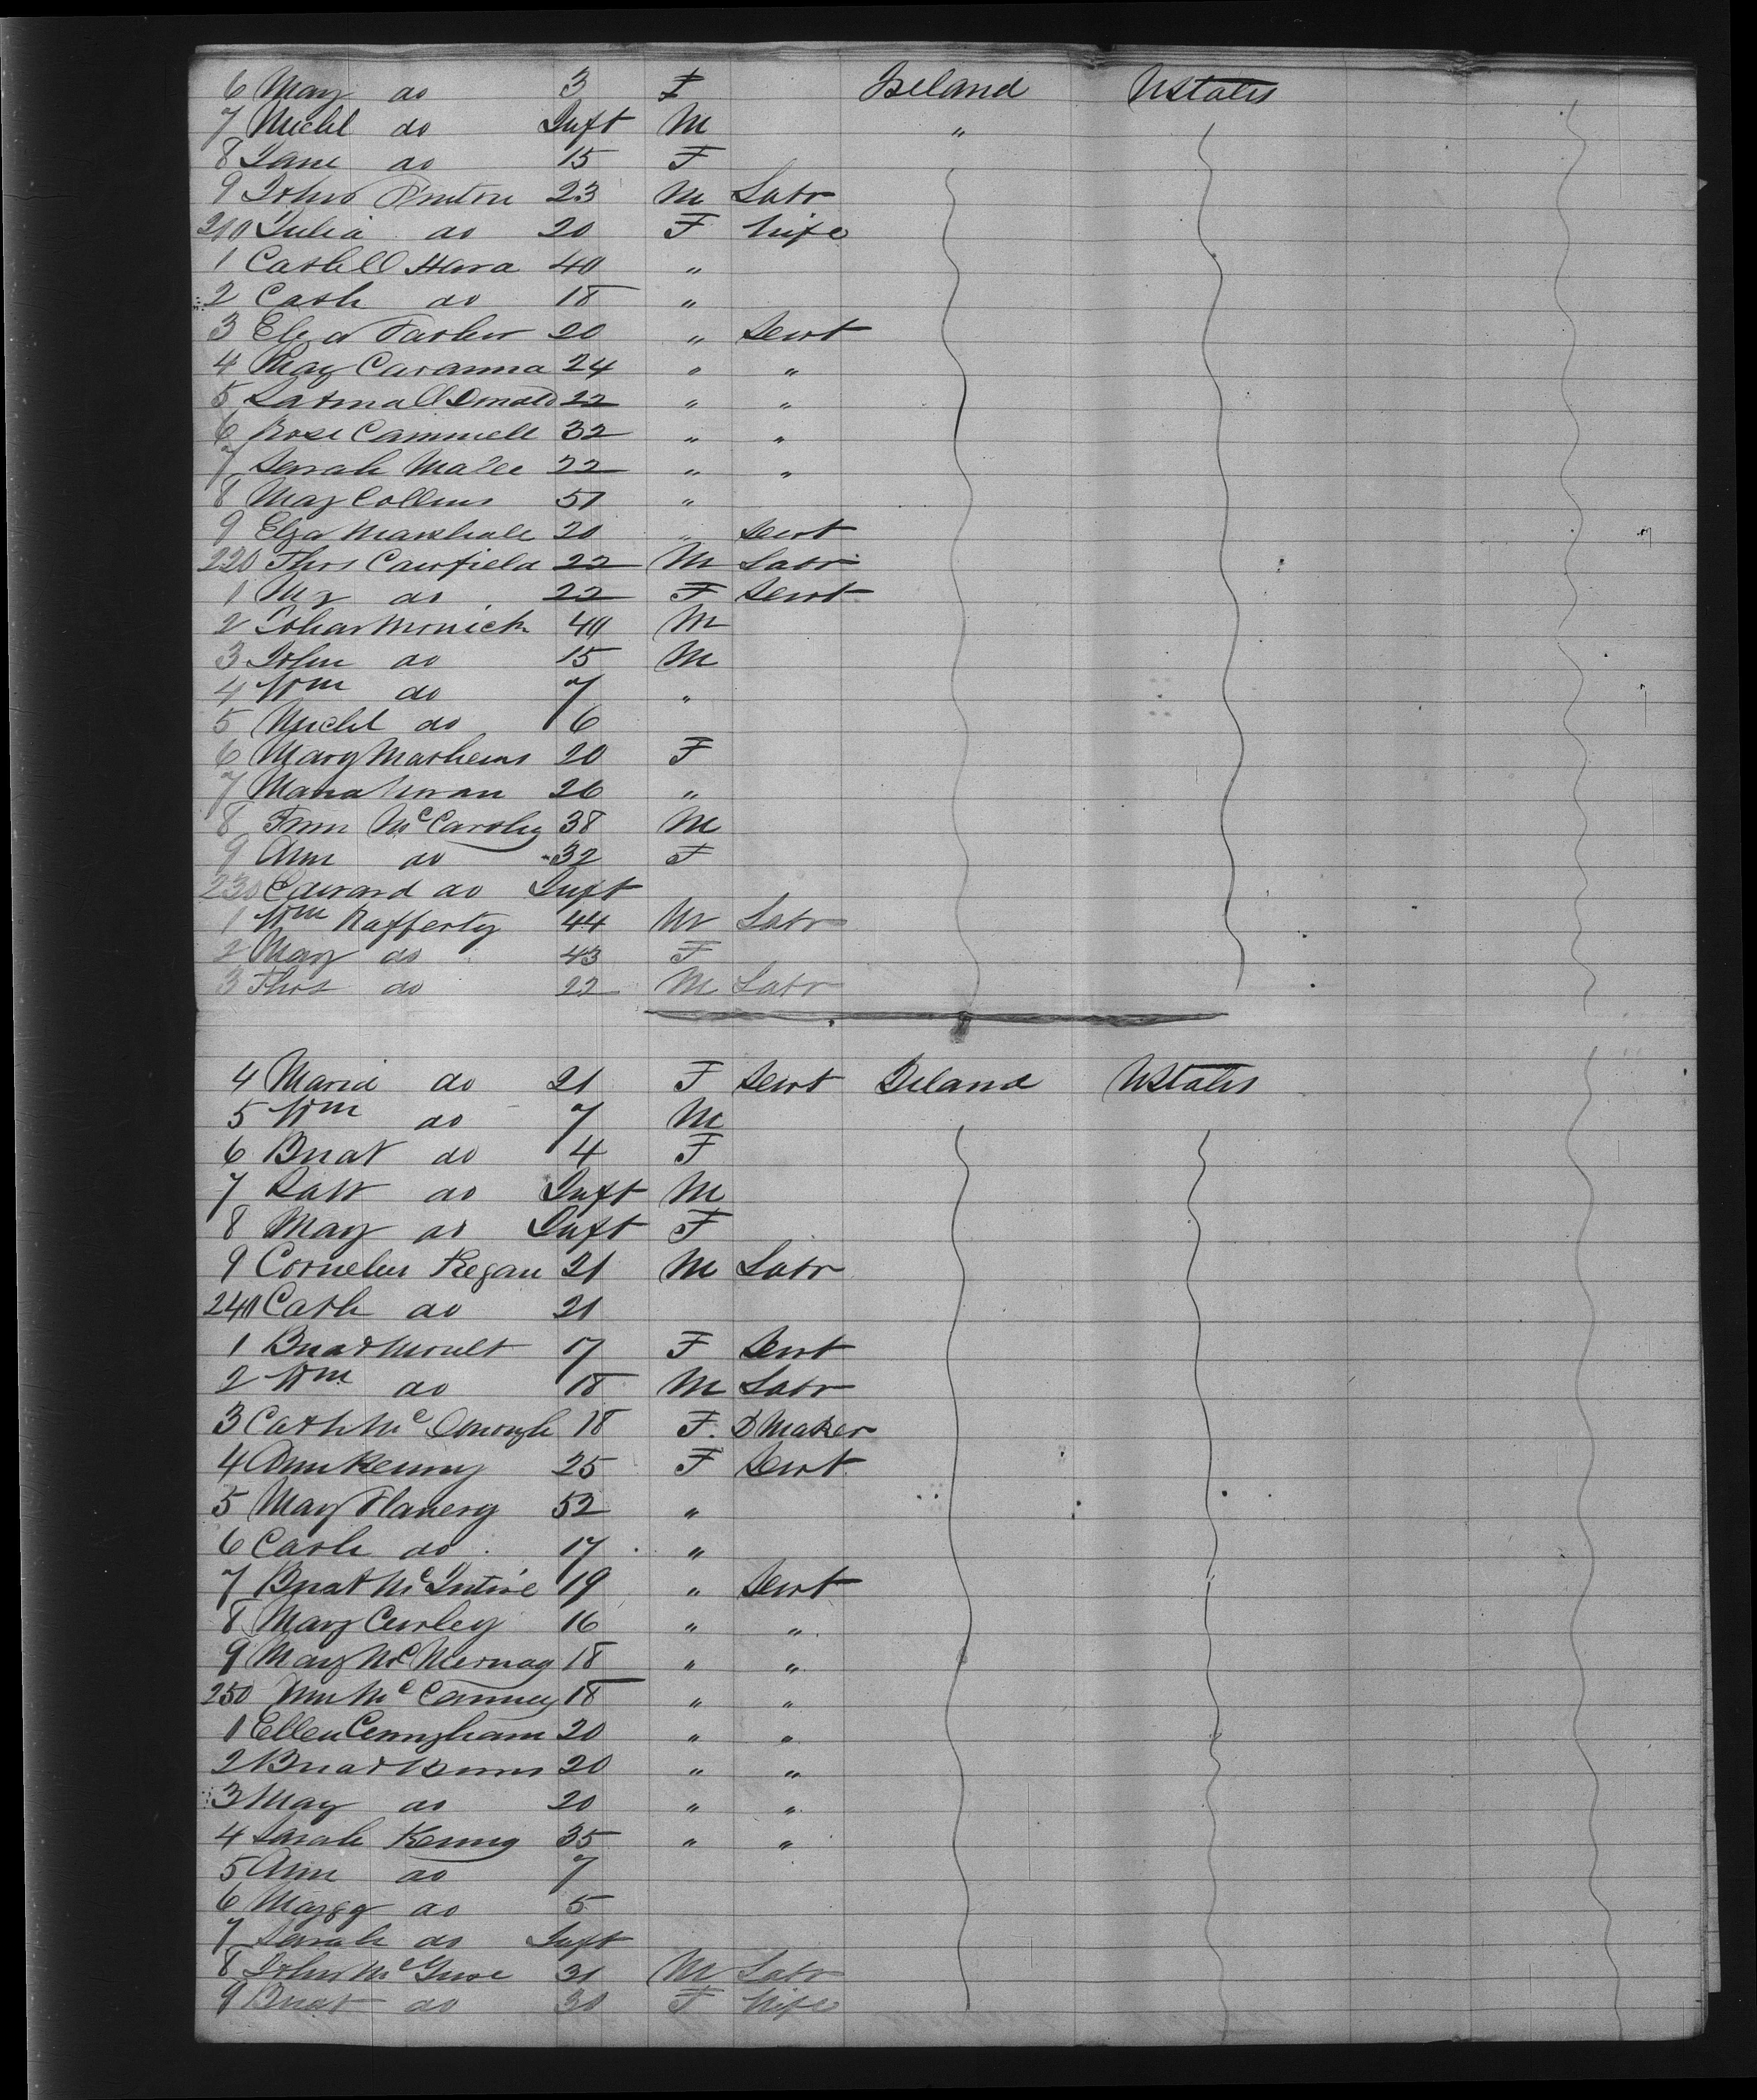 6 Mary do 3 F Ireland UStates
7 Michl do Inft M "
8 Jane do 15 F
9 John 23 M Labr
210 Julia do 20 F Wife
1 Cath O Hara 40 "
2 Cath do 18 "
3 Eliza 20 " Servt
4 Mary Cavanna 24 " "
5 22 " "
6 Rose Cammell 32 " "
7 Sarah 22 " "
8 Mary Collins 51 "
9 Elza Marshall 20 " Servt
220 Thos Canfield 22 M Labr
1 My do 22 F Servt
2 40 M
3 John do 15 M
4 Wm do 7 "
5 Michl do 6
6 Mary Mathews 20 F
7 Maria 26 "
8 McCarthy 38 M
9 Ann do 32 F
230 Edward do Inft
1 Wm Rafferty 44 M Labr
2 Mary do 43 F
3 Thos do 22 M Labr
4 Maria do 21 F Servt Ireland UStates
5 Wm do 7 M
6 Bridt do 4 F
7 Patk do Inft M
8 Mary do Inft F
9 Cornelius Regan 21 M Labr
240 Cath do 21
1 Bridt 17 F Servt
2 Wm do 18 M Labr
3 Cath McDonough 18 F D Maker
4 Ann Kenny 25 F Servt
5 Mary Flanery 52 "
6 Cath do 17 "
7 Bridt McIntire 19 " Servt
8 Mary Curley 16 " "
9 Mary 18 " "
250 18 " "
1 Ellen Cunngham 20 " "
2 Bridt 20 " "
3 Mary do 20 " "
4 Sarah Kenny 35 " "
5 Ann do 7
6 Margg do 5
7 Sarah do Inft
8 John McGuire 31 M Labr
9 Bridt do 30 F Wife